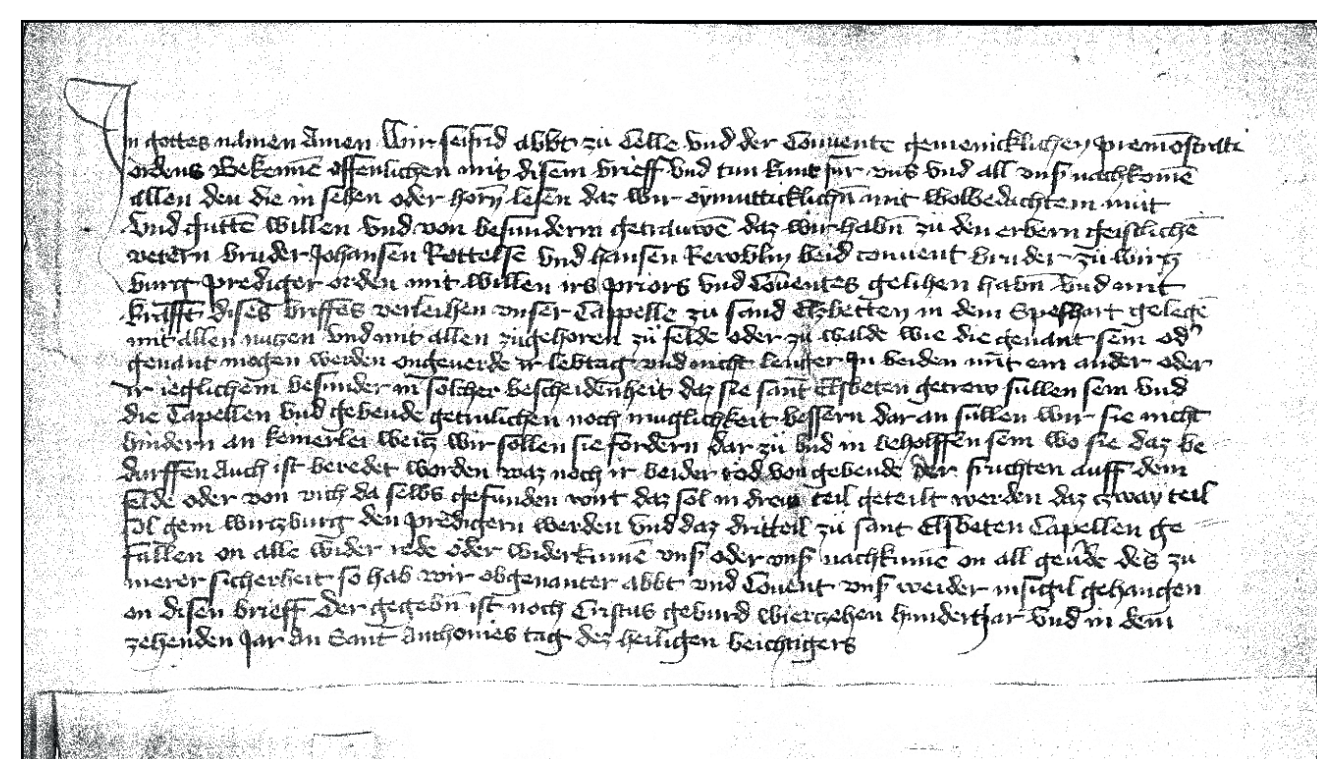 In gottes namen Amen Wir seifrid abbt zu Celle vnd der Conuente gemeincklichen premostrati
ordens Bekenne offenlichen mit disem brieff vnd tun kunt fur vns vnd all vnser nachkome
allen den die in sehen oder horn lesen daz wir eynmuticklichen mit wolbedachtem mut
vnd gutte willen vnd von besunderm getrauwe daz wir habn zu den erbern geistliche
vetern bruder Johansen Rottelse vnd hansen beid conuent bruder zu wirtz
burg prediger orden mit willen irs priors vnd Couentes gelihen habn vnd mit
krafft dises briffes verleihen vnser Cappelle zu sand Elzbetten in dem Speshart gelege
mit allen nutzen vnd mit allen zugehoren zu felde oder zu walde wie die genant sein od'
genant mogen werden ongeuerde ir lebtag vnd nicht lenger In beiden mit ein ander oder
ir ieglichem besunder in solcher bescheidenheit daz sie sant Elsbeten getrew sullen sein vnd
die Capellen vnd gebeude getrulichen noch muglichkeit bessern dar an sullen wir sie nicht
hindern an keinerlei weitz wir sollen sie fordern dar zu vnd in beholffen sein wo sie daz be
durffen Auch ist beredet worden waz noch ir beider tod von gebeude der fruchten auff dem
felde oder von vich da selbs gefunden wirt daz sol in drew teil geteilt werden daz czway teil
sol gein wirtzburg den predigern werden vnd daz dritteil zu sant Elsbeten Capellen ge
fallen on alle wider rede oder widerkume vnser oder vnser nachkume on all geu'de des zu
merer sicherheit so hab wir obgenanter abbt vnd Couent vnser weider insigil gehangen
on disen brieff Der gegebn ist noch Cristus geburd vierczehen hundert Jar vnd in dem
zehenden Jar An Sant Anthonies tag dez heiligen beichtigers